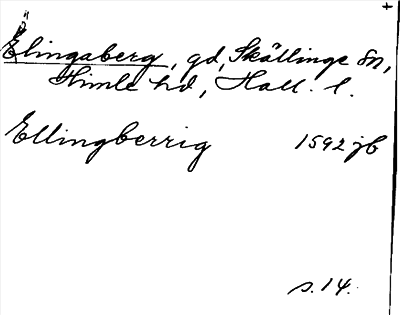 Elingaberg, gd, Skällinge sn,
Himle hd, Hall. l.
Ellingberrig 1592 jb
s. 14.